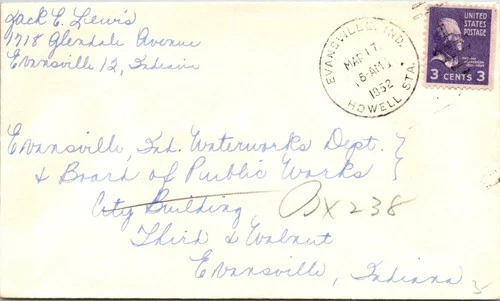 Jack E. Lewis
1718 Glendale Avenue
Evansville 12, Indiana
EVANSVILLE, IND.
MAR 17
6-AM
1952
HOWELL STA.
UNITED
STATES
POSTAGE
3 CENTS 3
Evansville, Ind. Waterworks Dept. }
& Board of Public Works }
City Building, Box 238
Third & Walnut
Evansville, Indiana